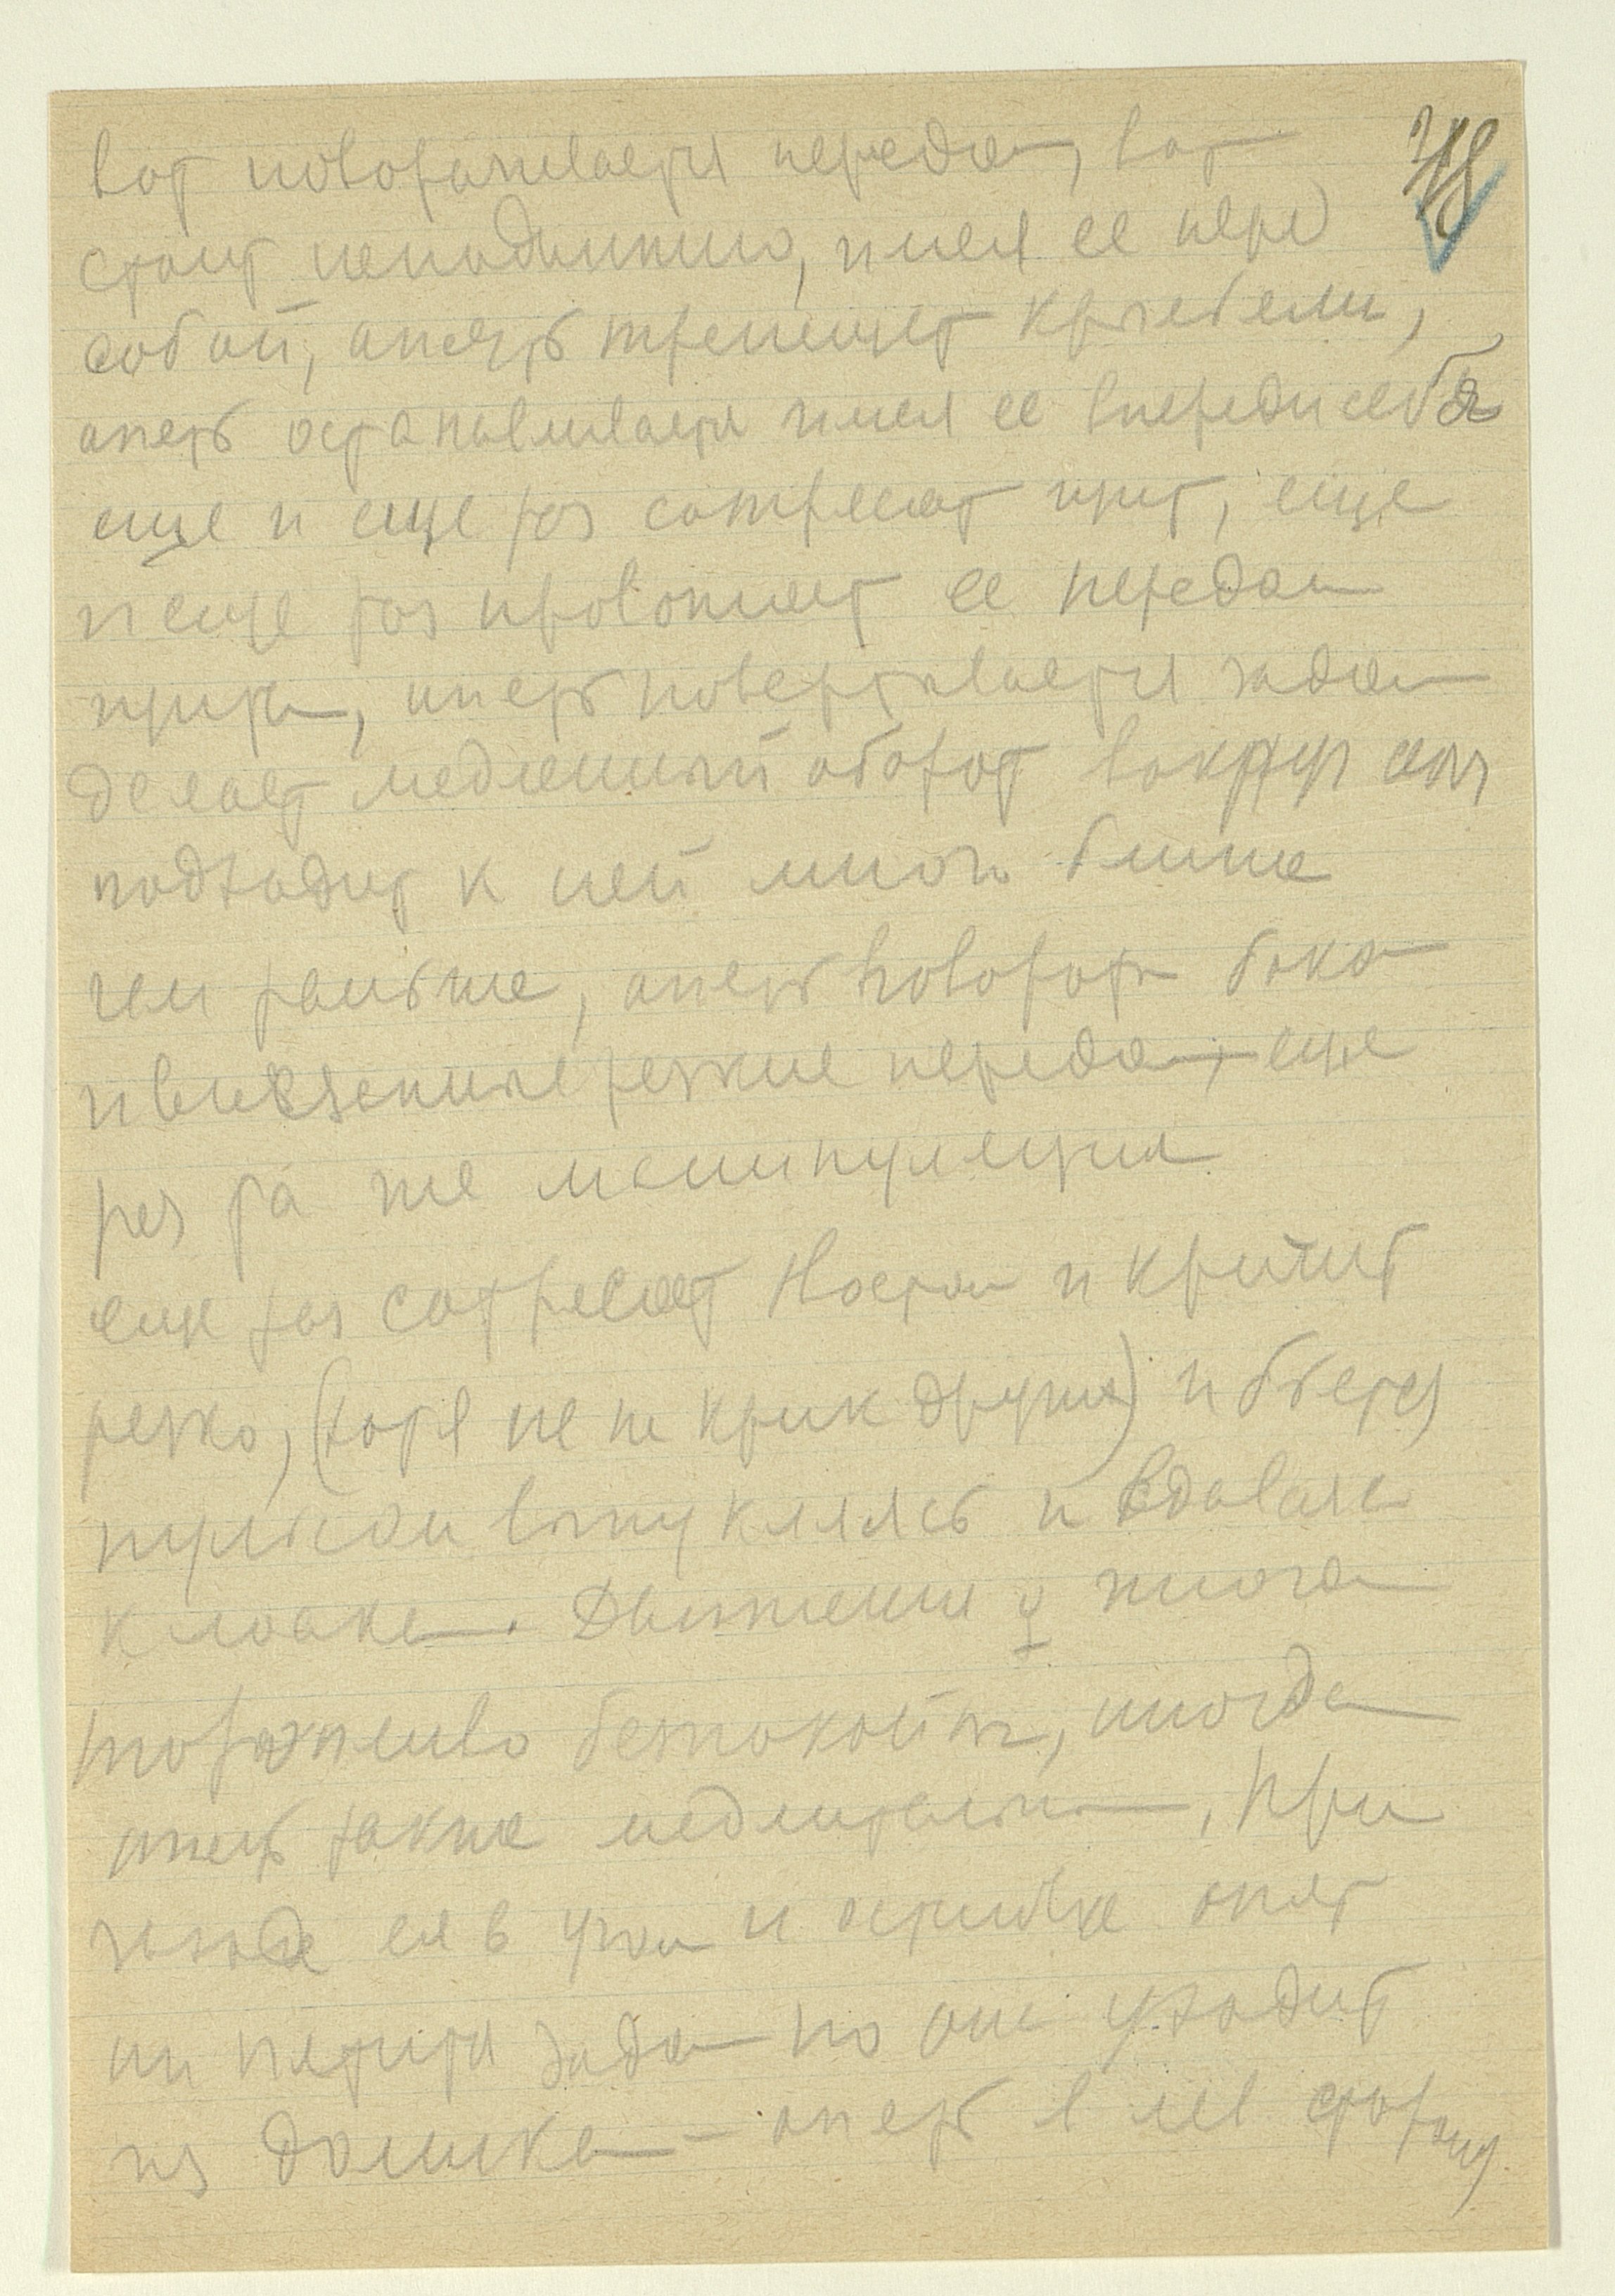 вот поворачивается передом, вот
стоит неподвижно, имея ее пере
собой, опять трепещет крыльями,
опять останавливается имея ее впереди себя
еще и еще раз сотрясает щит, еще
и еще раз провожает ее передом
щита, опять повертывается задом
делает медленный оборот вокруг оси
подходит к ней много ближе
чем раньше, опять поворот боком
и внезапный резкие передом, еще
раз та же манипуляция
еще раз сотрясает хвостом и кричит
резко, (хотя не же крик других) и бьется
пульсом выпукляясь и вдаваясь
клоака. Движения ♀ иногда
тревожно беспокойны, иногда
опять также медлительны, при
заходе ея в угол и остановке опят
пятится задом но она уходит
из домика – опять в лев сторону